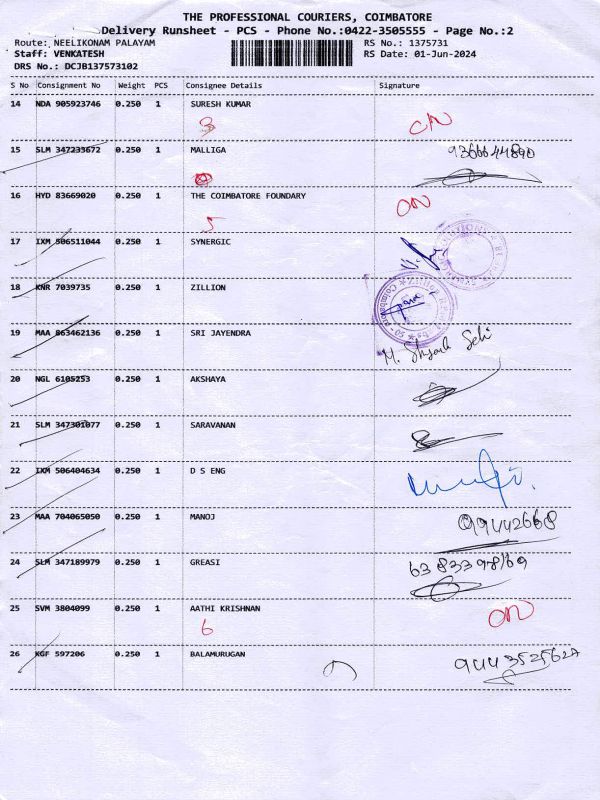 THE PROFESSIONAL COURIERS, COIMBATORE
Delivery Runsheet - PCS - Phone No.:0422-3505555 - Page No.:2
Route: NEELIKONAM PALAYAM RS No.: 1375731
Staff: VENKATESH RS Date: 01-Jun-2024
DRS No.: DCJB137573102
S No Consignment No Weight PCS Consignee Details Signature
14 NDA 905923746 0.250 1 SURESH KUMAR
3 ON
15 SLM 347233672 0.250 1 MALLIGA
16 HYD 83669020 0.250 1 THE COIMBATORE FOUNDARY ON
5
17 IXM 506511044 0.250 1 SYNERGIC
18 KNR 7039735 0.250 1 ZILLION
19 MAA 863462136 0.250 1 SRI JAYENDRA
20 NGL 6105253 0.250 1 AKSHAYA
21 SLM 347301077 0.250 1 SARAVANAN
22 IXM 506404634 0.250 1 D S ENG
23 MAA 704065050 0.250 1 MANOJ
24 SLM 347189979 0.250 1 GREASI
25 SVM 3804099 0.250 1 AATHI KRISHNAN ON
6
26 KGF 597206 0.250 1 BALAMURUGAN